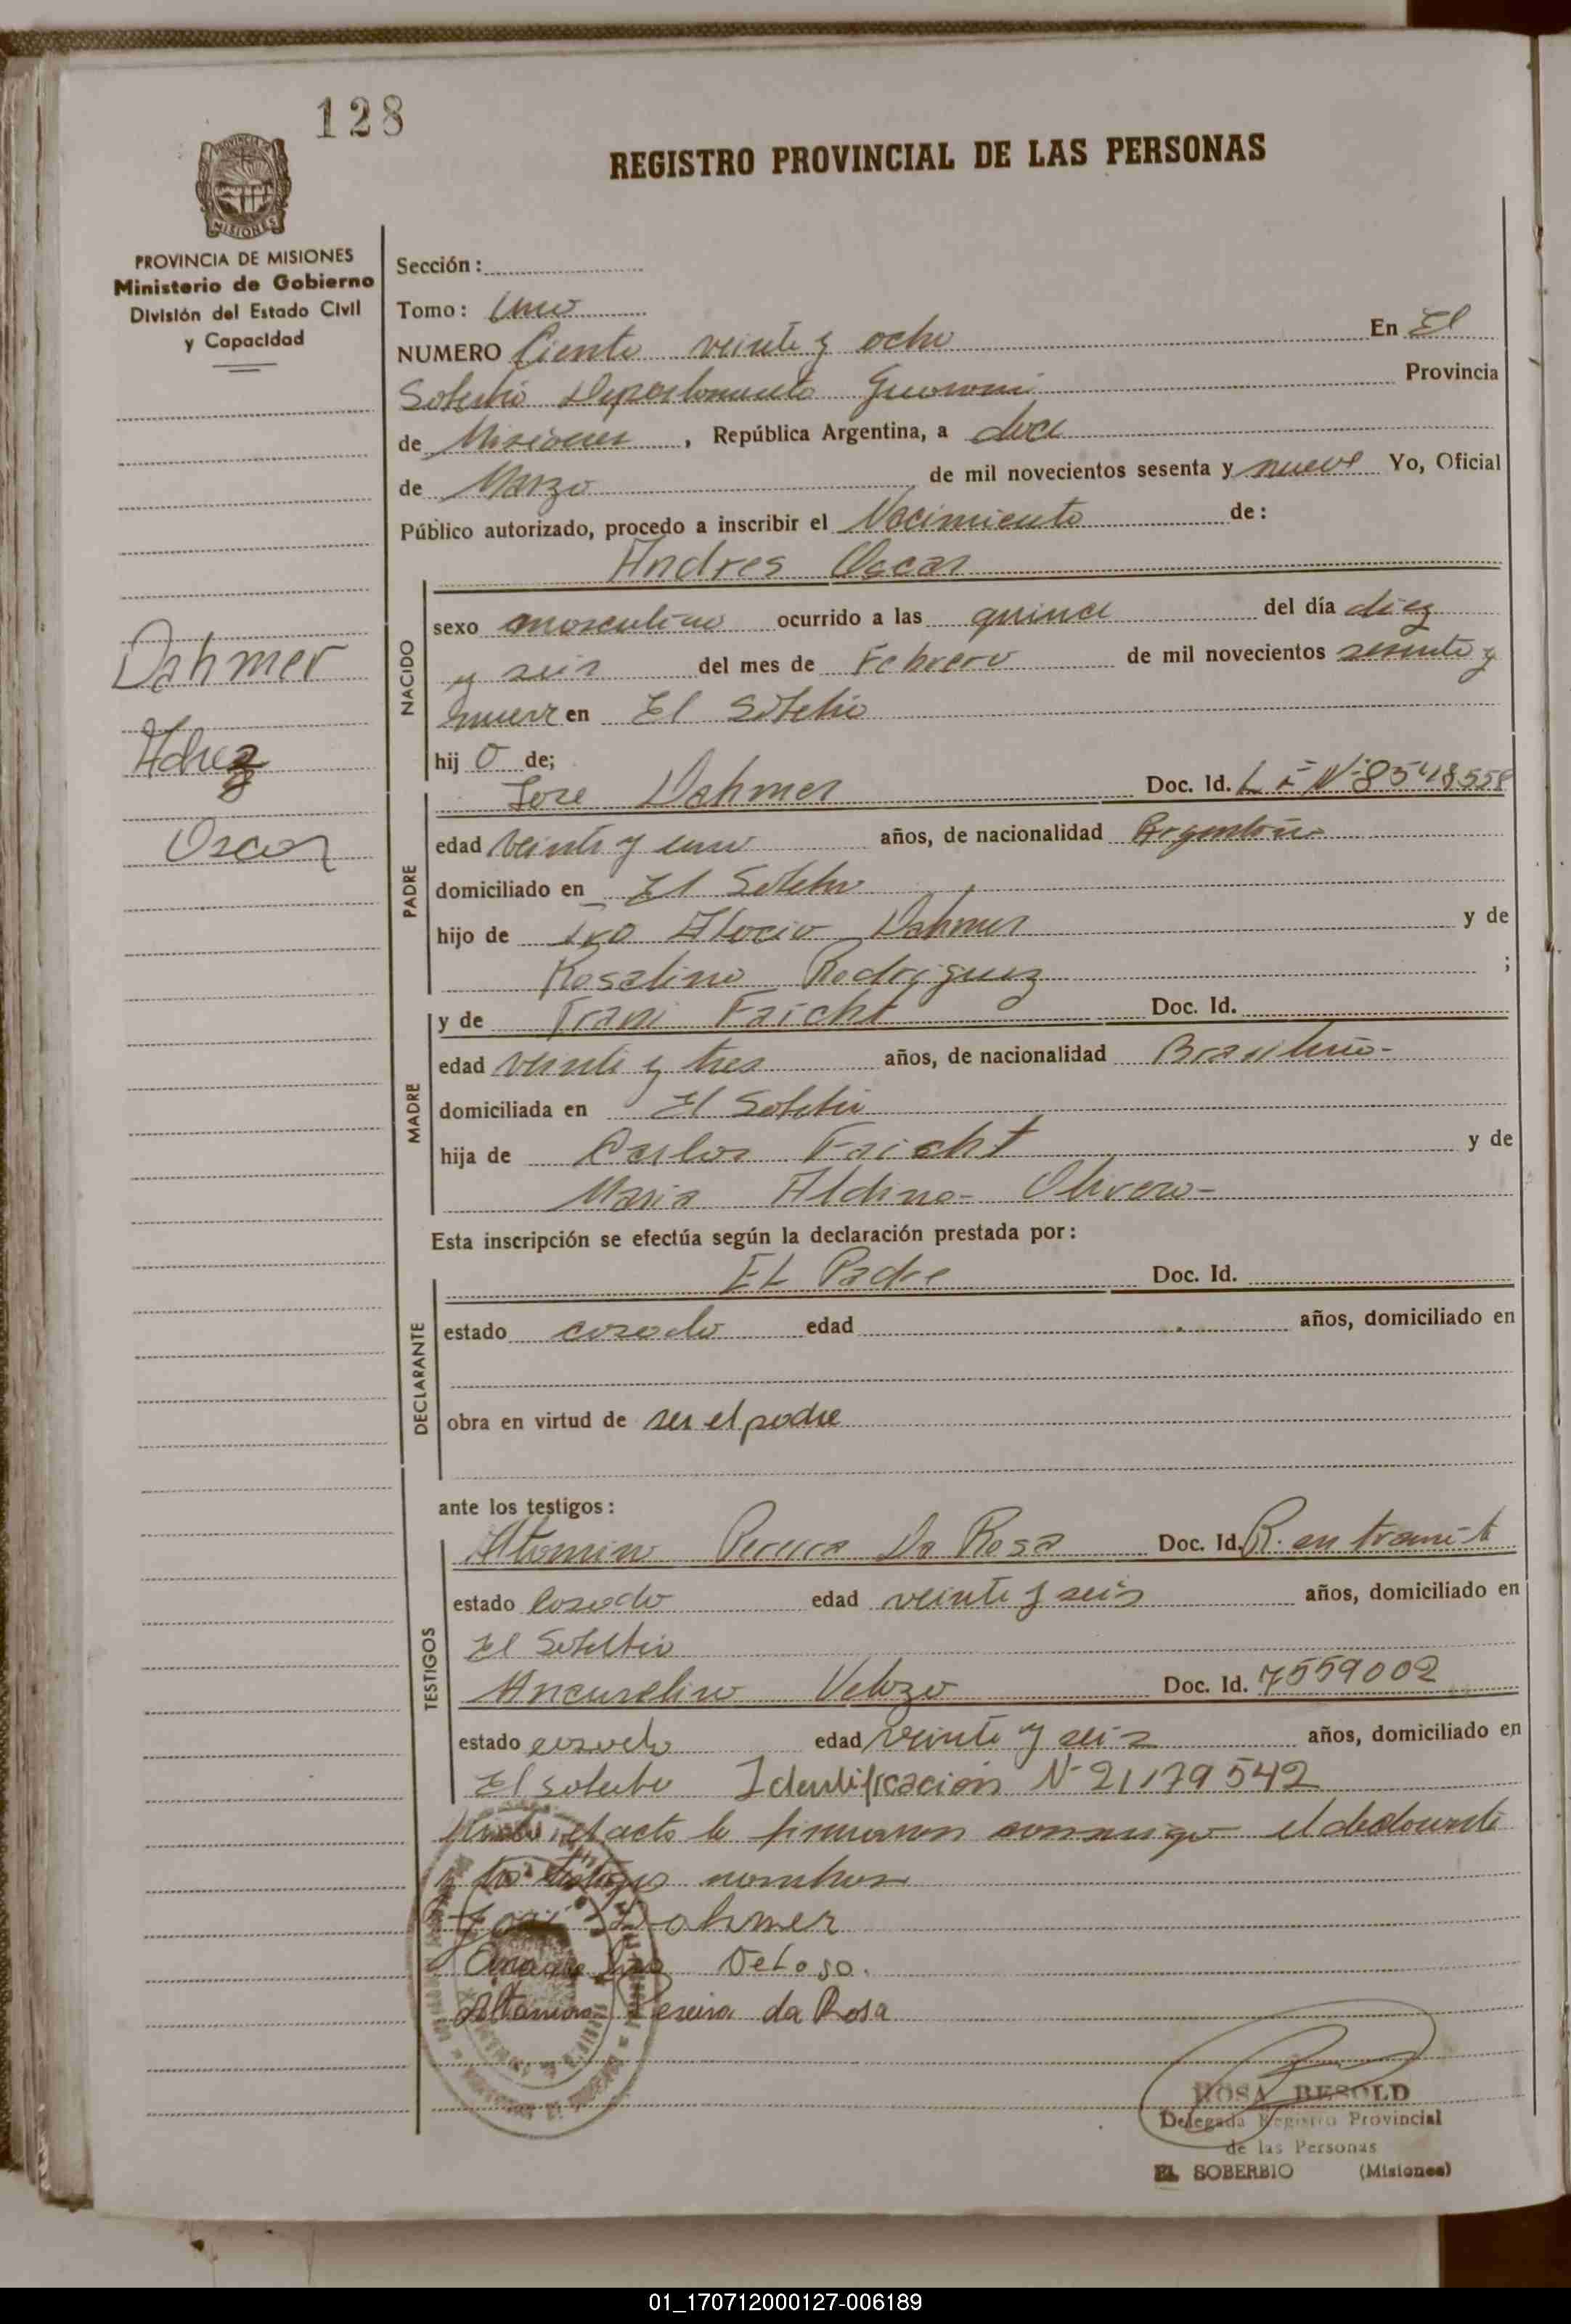 128
REGISTRO PROVINCIAL DE LAS PERSONAS
MISIONES
PROVINCIA DE MISIONES
Ministerio de Gobierno
División del Estado Civil
y Capacidad
Dahmer
Oscar
Sección:
Tomo: Uno
NUMERO Ciento veinte y ocho En El
Soberbio Departamento Guarani Provincia
de Misiones, República Argentina, a doce
de Marzo de mil novecientos sesenta y nueve Yo, Oficial
Público autorizado, procedo a inscribir el Nacimiento de:
Andres Oscar
NACIDO
sexo masculino ocurrido a las quince del día diez
y seis del mes de Febrero de mil novecientos sesenta y
nueve en El Soberbio
hij o de;
PADRE
Jose Dahmer Doc. Id. L E Nº 8548558
edad veinte y uno años, de nacionalidad Argentino
domiciliado en El Soberbio
hijo de Dahmer y de
Rosalino Rodriguez ;
MADRE
y de Trani Faicht Doc. Id.
edad veinte y tres años, de nacionalidad Brasileño-
domiciliada en El Soberbio
hija de Carlos Faicht y de
Maria Aldino- Olivero-
Esta inscripción se efectúa según la declaración prestada por:
DECLARANTE
EL Padre Doc. Id.
estado casado edad años, domiciliado en
obra en virtud de ser el padre
ante los testigos:
TESTIGOS
Pereira Da Rosa Doc. Id. R. en tramite
estado Casado edad veinte y seis años, domiciliado en
El Soberbio
Velozo Doc. Id. 7559002
estado casado edad veinte y seis años, domiciliado en
El Soberbio Identificación Nº 21179542
el acta la firmaron conmigo el declarante
y los testigos nombran
José Dahmer
Veloso.
Pereira da Rosa
ROSA BESOLD
Delegada Registro Provincial
de las Personas
EL SOBERBIO (Misiones)
01_170712000127-006189